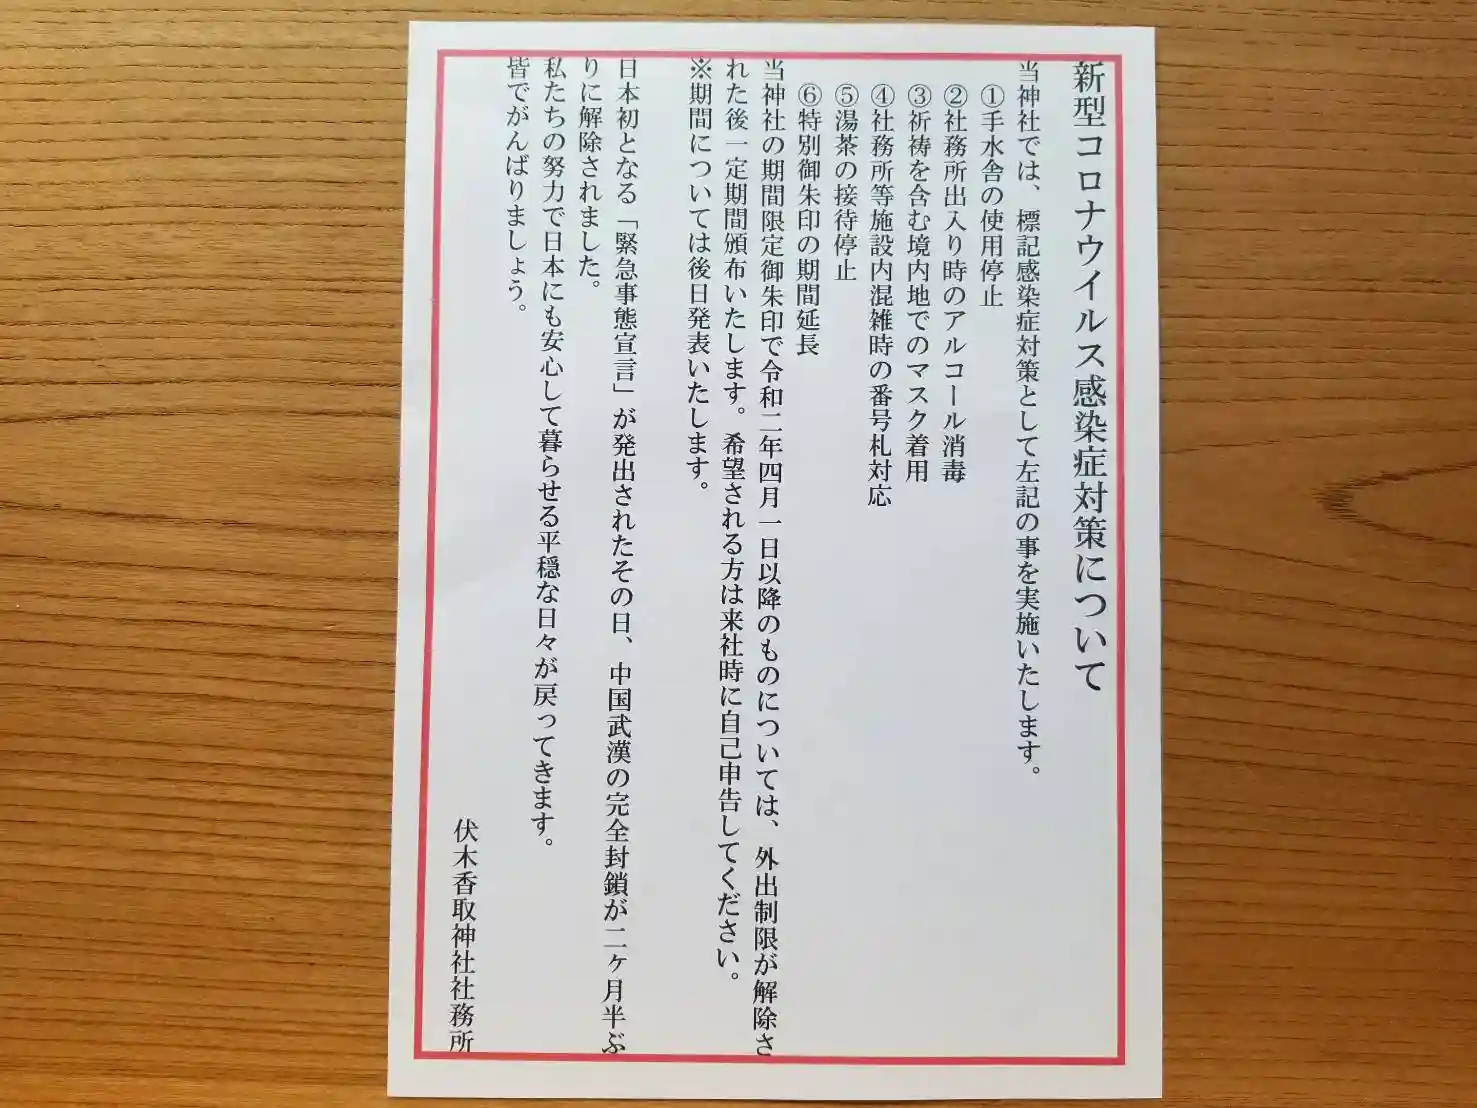 新型コロナウイルス感染症対策について
当神社では、標記感染症対策として左記の事を実施いたします。
①手水舎の使用停止
②社務所出入り時のアルコール消毒
③祈祷を含む境内地でのマスク着用
④社務所等施設内混雑時の番号札対応
⑤湯茶の接待停止
⑥特別御朱印の期間延長
当神社の期間限定御朱印で令和二年四月一日以降のものについては、外出制限が解除さ
れた後一定期間頒布いたします。希望される方は来社時に自己申告してください。
※期間については後日発表いたします。
日本初となる「緊急事態宣言」が発出されたその日、中国武漢の完全封鎖が二ヶ月半ぶ
りに解除されました。
私たちの努力で日本にも安心して暮らせる平穏な日々が戻ってきます。
皆でがんばりましょう。
伏木香取神社社務所